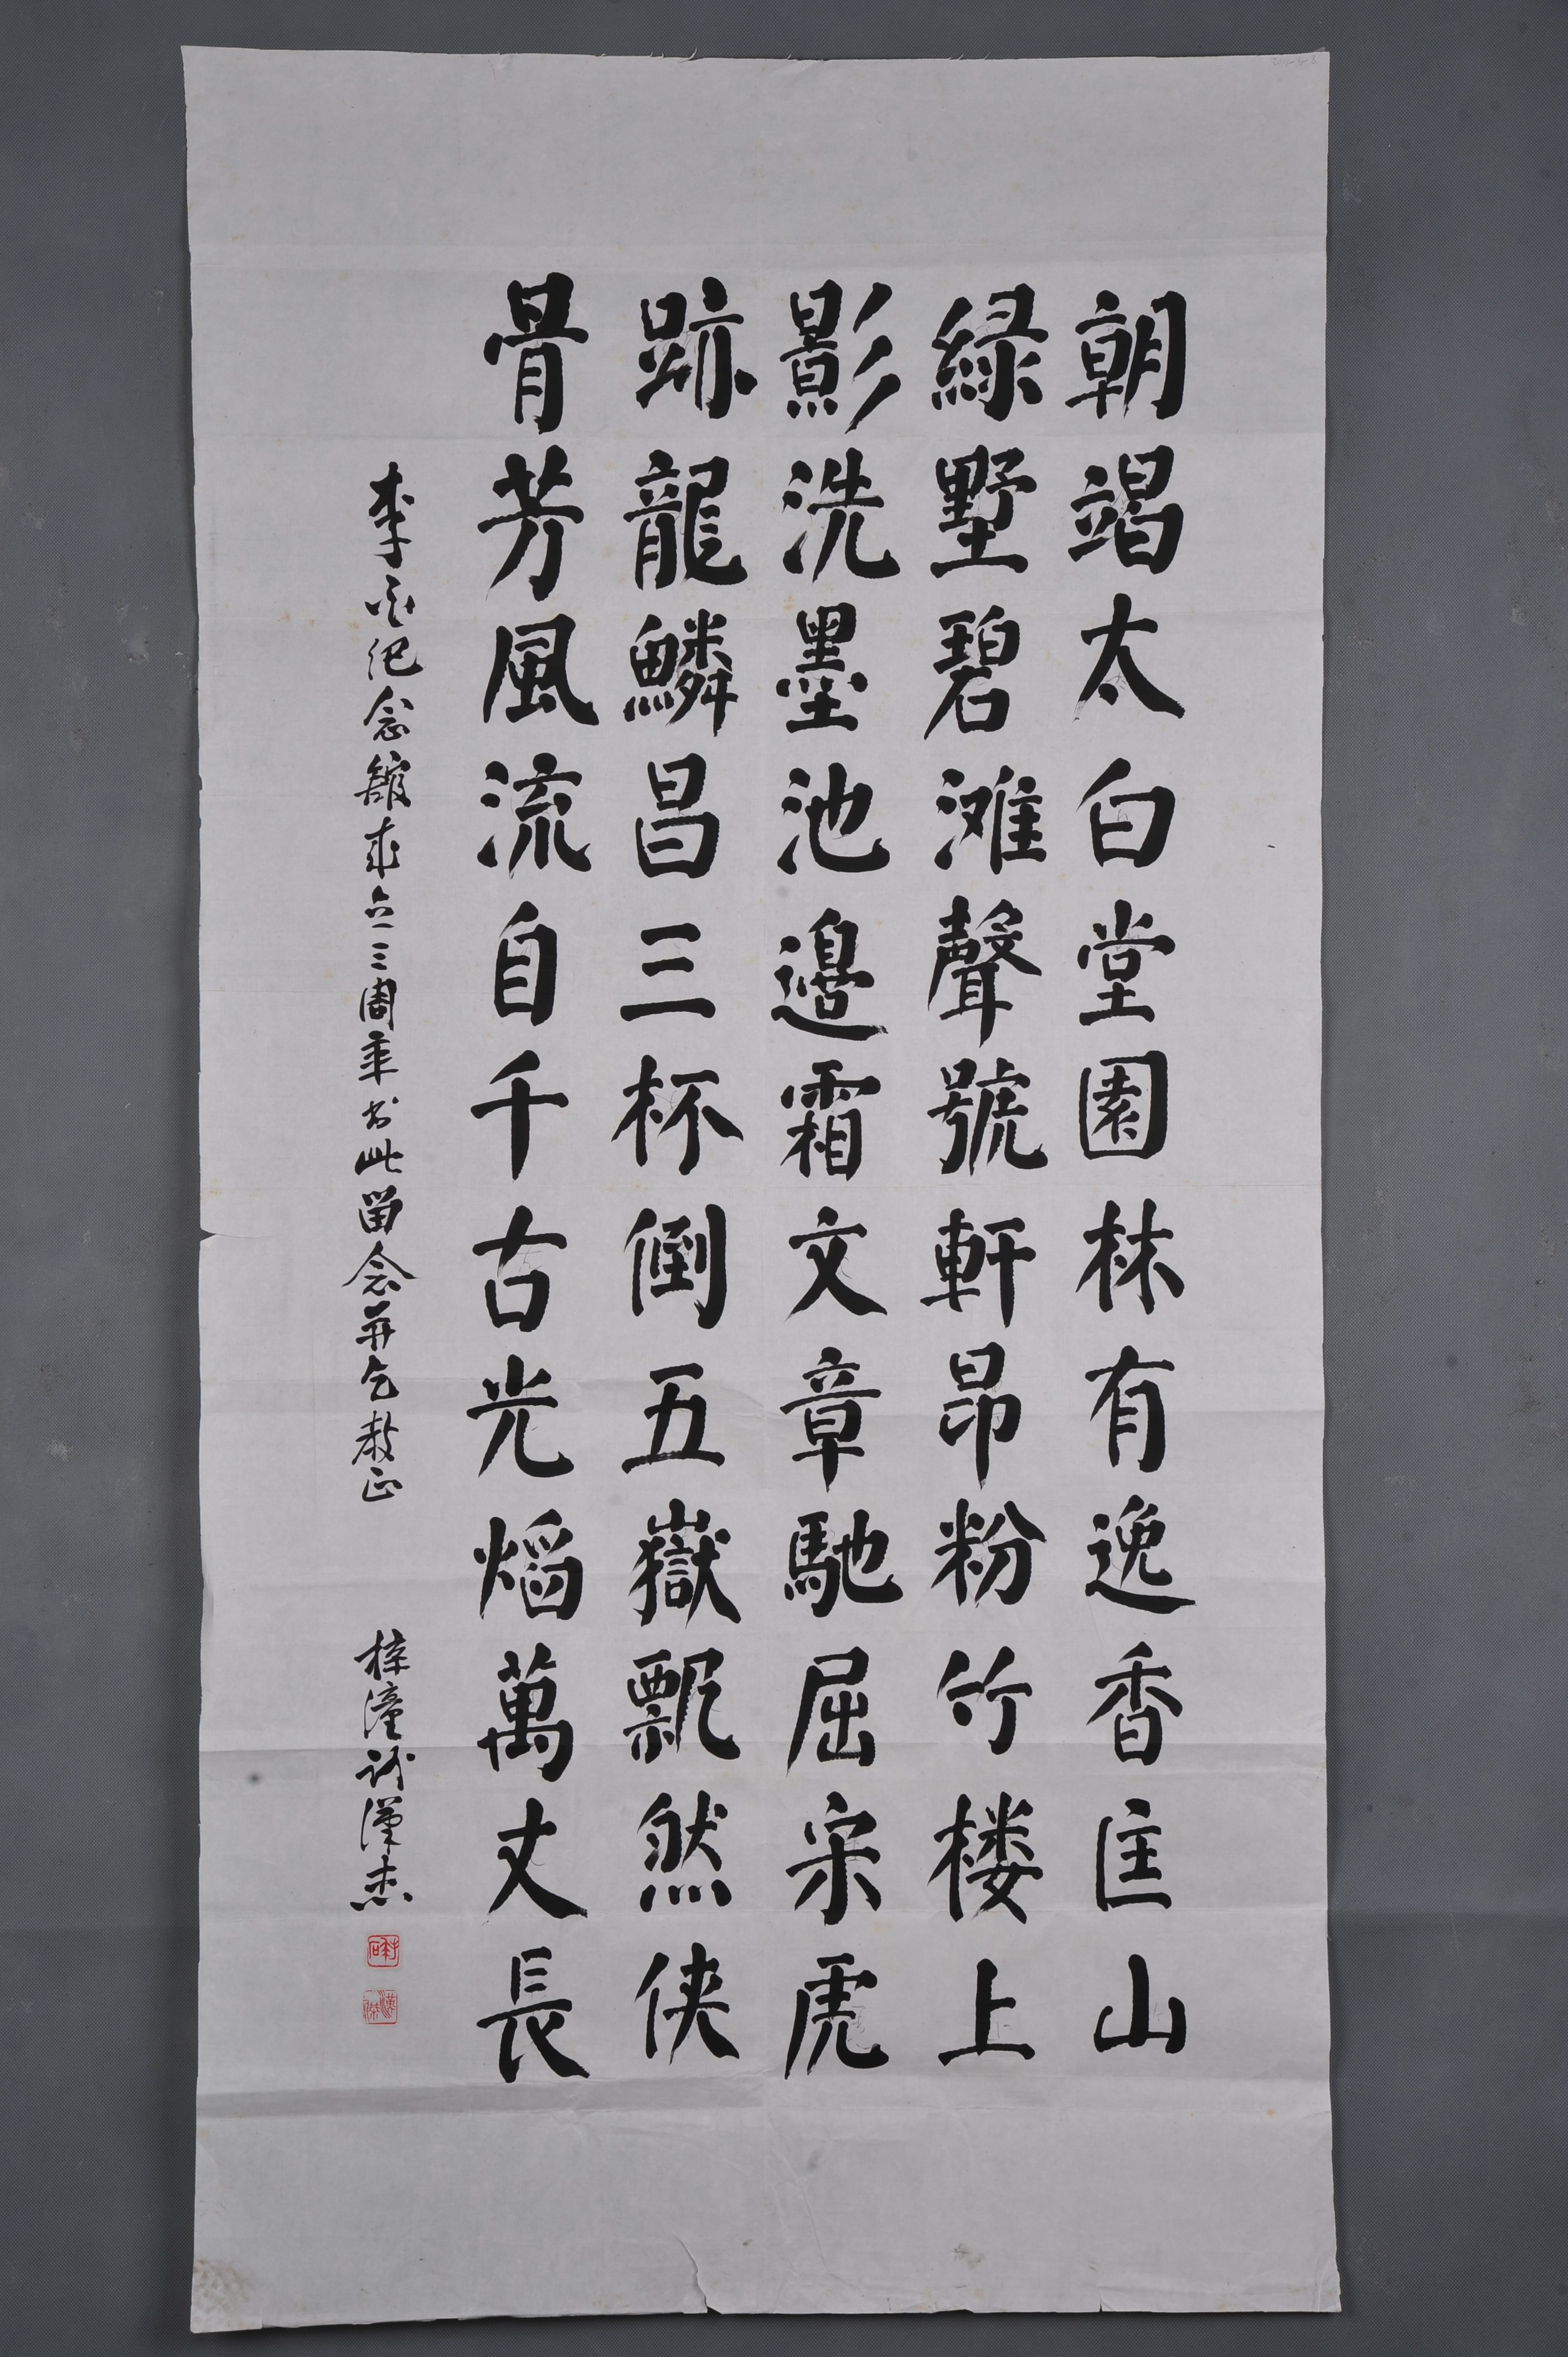 朝竭太白堂園林有逸香匡山
緑墅碧滩聲號軒昂粉竹楼上
影洗墨池邊霜文章馳屈宋虎
跡龍鱗昌三杯倒五嶽飄然俠
骨芳風流自千古光熖萬丈長
李白纪念舘成立三周年书此留念并乞教正
梓潼謝漢杰